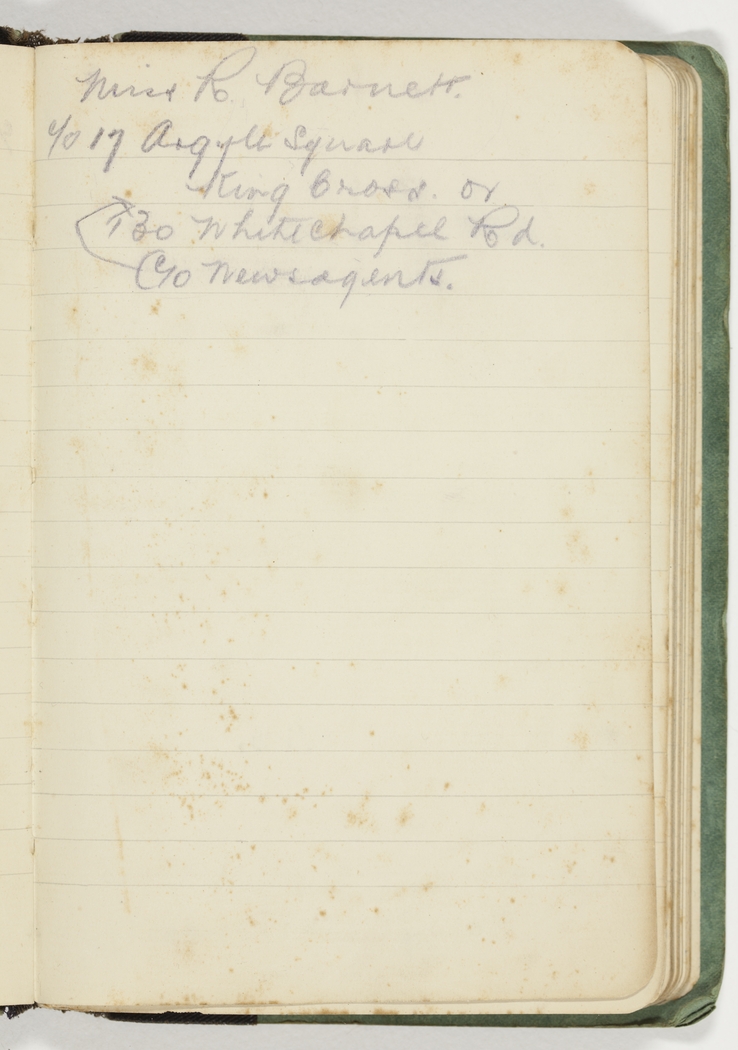 Miss R. Barnett.
C/o 17 Argyle Square
King Cross. or
130 Whitechapel Rd.
C/o Newsagents.